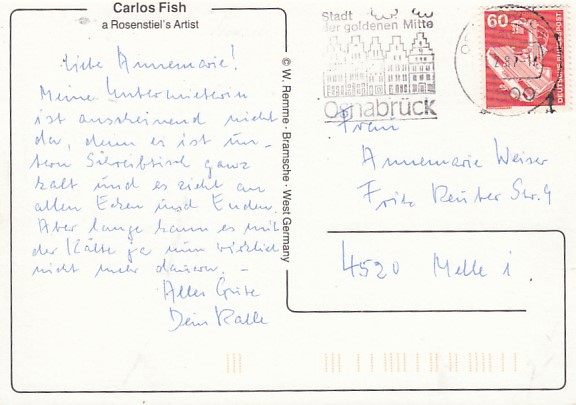 Carlos Fish
a Rosenstiel's Artist
Liebe Annemarie!
Meine Untermieterin
ist anscheinend nicht
da, denn es ist un-
term Schreibtisch ganz
kalt und es zieht an
allen Ecken und Enden.
Aber lange kann es mit
der Kälte ja nun wirklich
nicht mehr dauern. –
Alles Gute
Dein Kalle
© W. Remme · Bramsche · West Germany
Stadt
der goldenen Mitte
Osnabrück
60
DEUTSCHE BUNDESPOST
Frau
Annemarie Weiser
Fritz Reuter Str. 4
4520 Melle 1